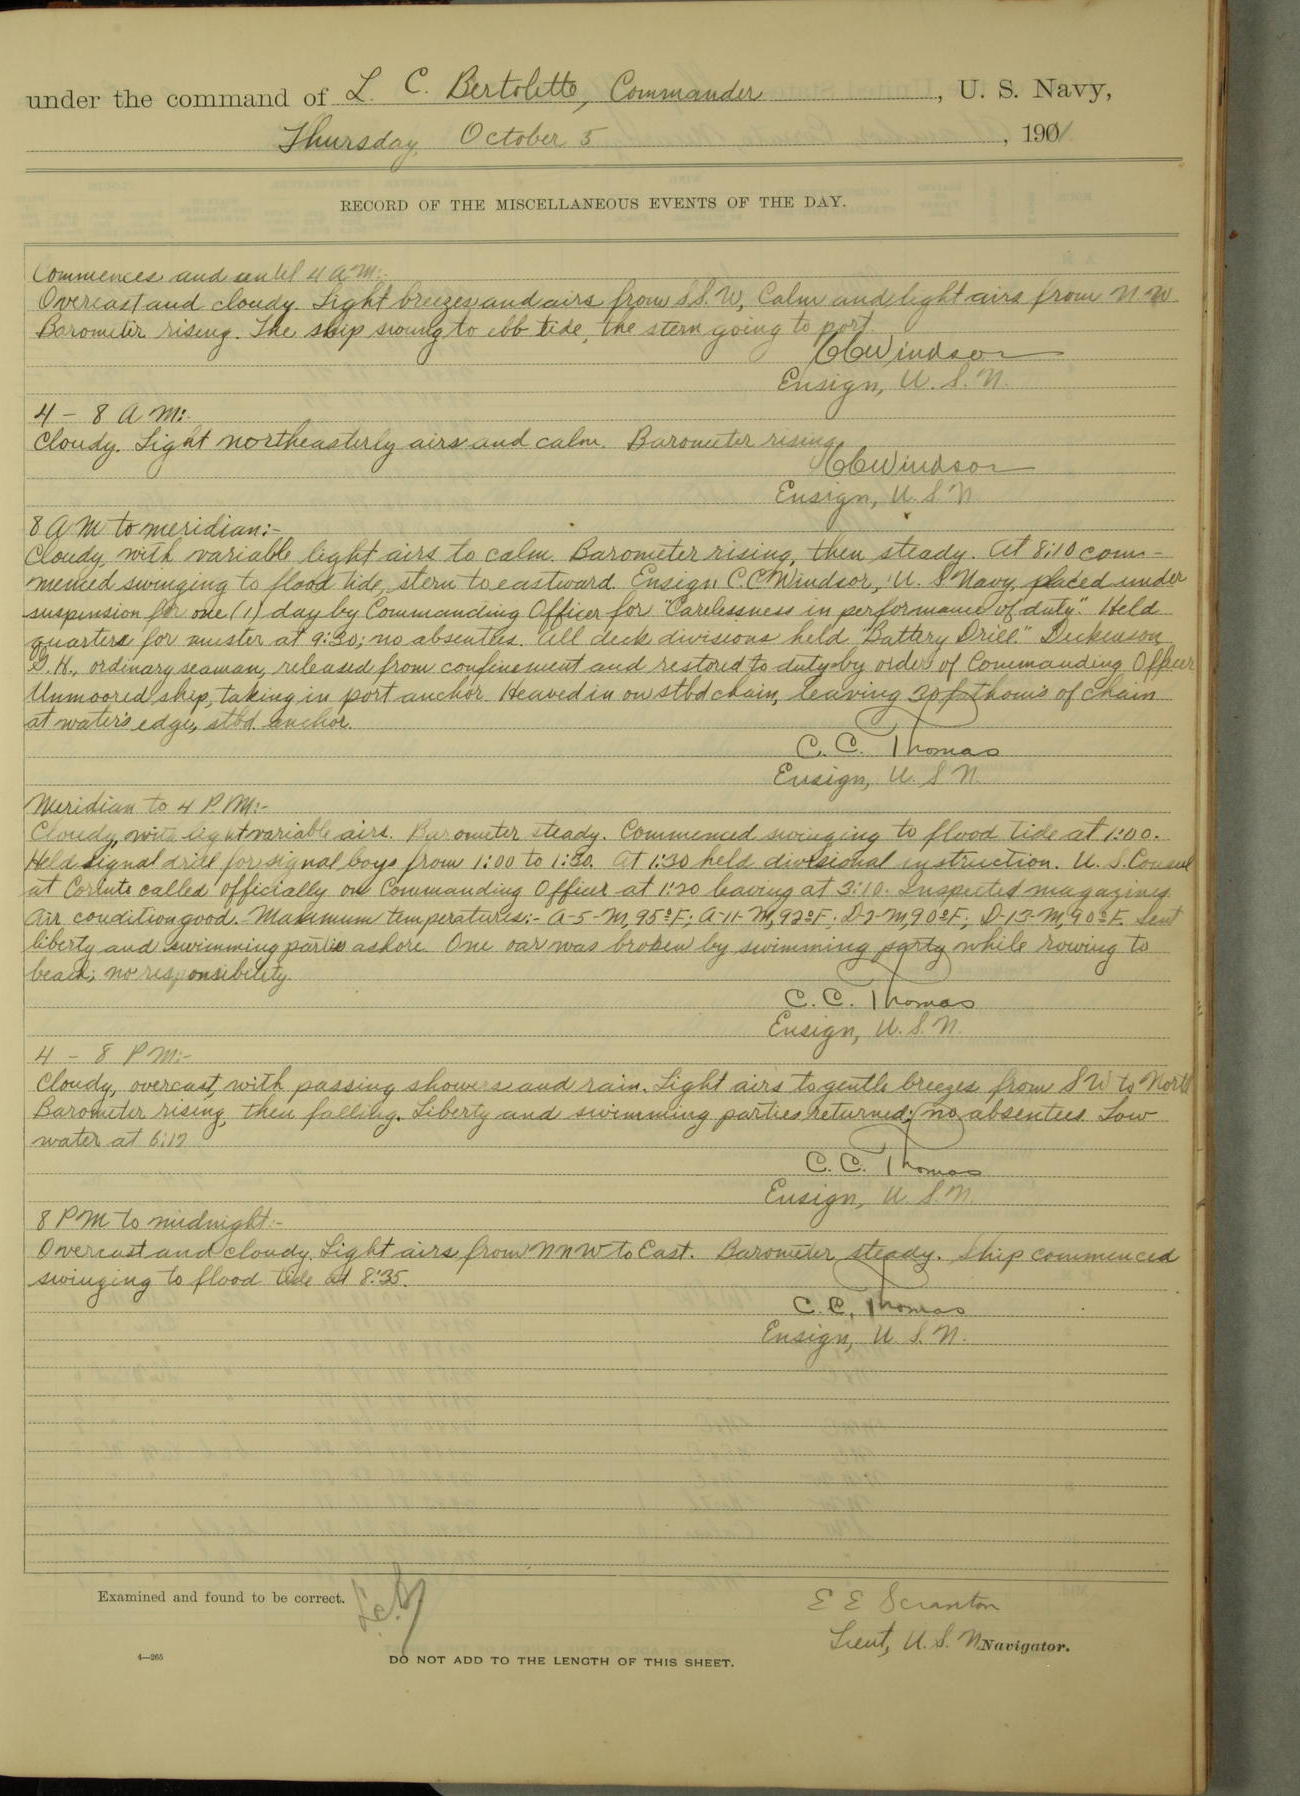 under the command of L. C. Bertolette, Commander, U. S. Navy,
Thursday, October 5, 190
RECORD OF THE MISCELLANEOUS EVENTS OF THE DAY.
Commences and until 4 A M:-
Overcast and cloudy. Light breezes and airs from S.S.W, Calm and light airs from N W
Barometer rising. The ship swung to ebb tide, the stern going to port.
CCWindsor
Ensign, U. S. N.
4 - 8 A M:-
Cloudy. Light northeasterly airs and calm. Barometer rising.
CCWindsor
Ensign, U. S N
8 A M to meridian:-
Cloudy, with variable light airs to calm. Barometer rising, then steady. At 8:10 com-
menced swinging to flood tide, stern to eastward. Ensign C.C.Windsor, U. S Navy, placed under
suspension for one (1) day by Commanding Officer for "Carelessness in performance of duty." Held
quarters for muster at 9:30; no absentees. All deck divisions held "Battery Drill." Dickenson
G.H., ordinary seaman, released from confinement and restored to duty by order of Commanding Officer
Unmoored ship, taking in port anchor. Heaved in on stbd chain, leaving 30 fathoms of chain
at water's edge, stbd. anchor.
C. C. Thomas
Ensign, U. S N.
Meridian to 4 P.M:-
Cloudy, with light variable airs. Barometer steady. Commenced swinging to flood tide at 1:00.
Held signal drill for signal boys from 1:00 to 1:30. At 1:30 held divisional instruction. U. S. Consul
at Corinto called officially on Commanding Officer at 1:20 leaving at 3:10. Inspected magazines.
Air condition good. Maximum temperatures:- A-5-M, 95°F; A-11-M, 92°F; D-2-M, 90°F; D-13-M, 90°F. Sent
liberty and swimming parties ashore. One oar was broken by swimming party while rowing to
beach; no responsibility.
C. C. Thomas
Ensign, U. S. N.
4 - 8 P M:-
Cloudy, overcast, with passing showers and rain. Light airs to gentle breezes from S W to North
Barometer rising, then falling. Liberty and swimming parties returned; no absentees. Low
water at 6:12
C. C. Thomas
Ensign, U. S. N.
8 P M to midnight:-
Overcast and cloudy. Light airs from NNW to East. Barometer steady. Ship commenced
swinging to flood tide at 8:35.
C. C. Thomas
Ensign, U. S. N.
Examined and found to be correct.
E E Scranton
Lieut, U. S. N. Navigator.
4—265
DO NOT ADD TO THE LENGTH OF THIS SHEET.